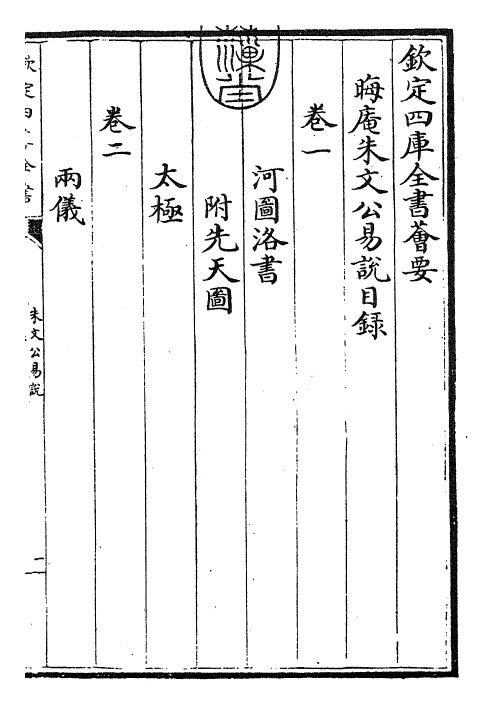 欽定四庫全書薈要
晦庵朱文公易說目録
卷一
河圖洛書
附先天圖
太極
卷二
兩儀
朱文公易說
二